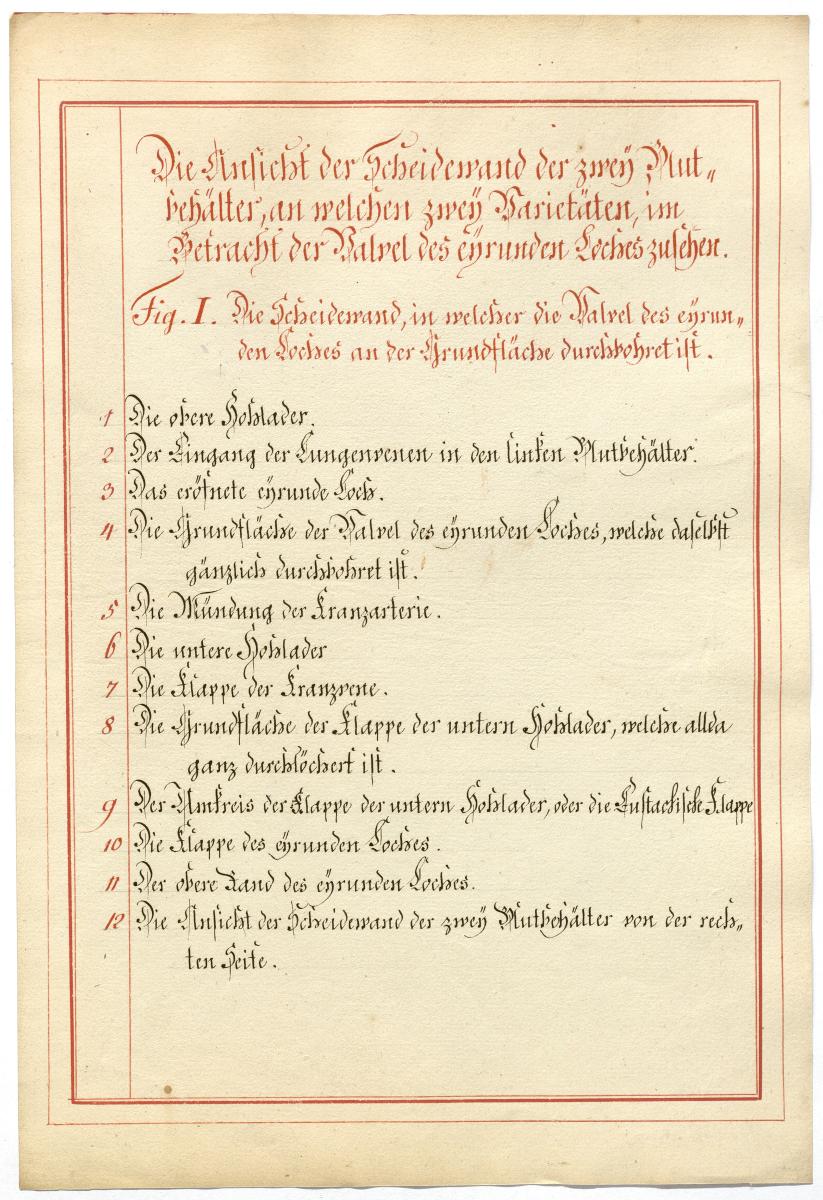 Die Ansicht der Scheidewand der zwey Blut„
behälter, an welchen zwey Varietäten, im
Betracht der Valvel des eyrunden Loches zusehen.
Fig. I. Die Scheidewand, in welcher die Valvel des eyrun„
den Loches an der Grundfläche durchbohret ist.
1 Die obere Hohlader.
2 Der Eingang der Lungenvenen in den linken Blutbehälter.
3 Das eröfnete eyrunde Loch.
4 Die Grundfläche der Valvel des eyrunden Loches, welche daselbst
gänzlich durchbohret ist.
5 Die Mündung der Kranzarterie.
6 Die untere Hohlader
7 Die Klappe der Kranzvene.
8 Die Grundfläche der Klappe der untern Hohlader, welche allda
ganz durchlöchert ist.
9 Der Umkreis der Klappe der untern Hohlader, oder die Eustachische Klappe
10 Die Klappe des eyrunden Loches.
11 Der obere Rand des eyrunden Loches.
12 Die Ansicht der Scheidewand der zwey Blutbehälter von der rech„
ten Seite.